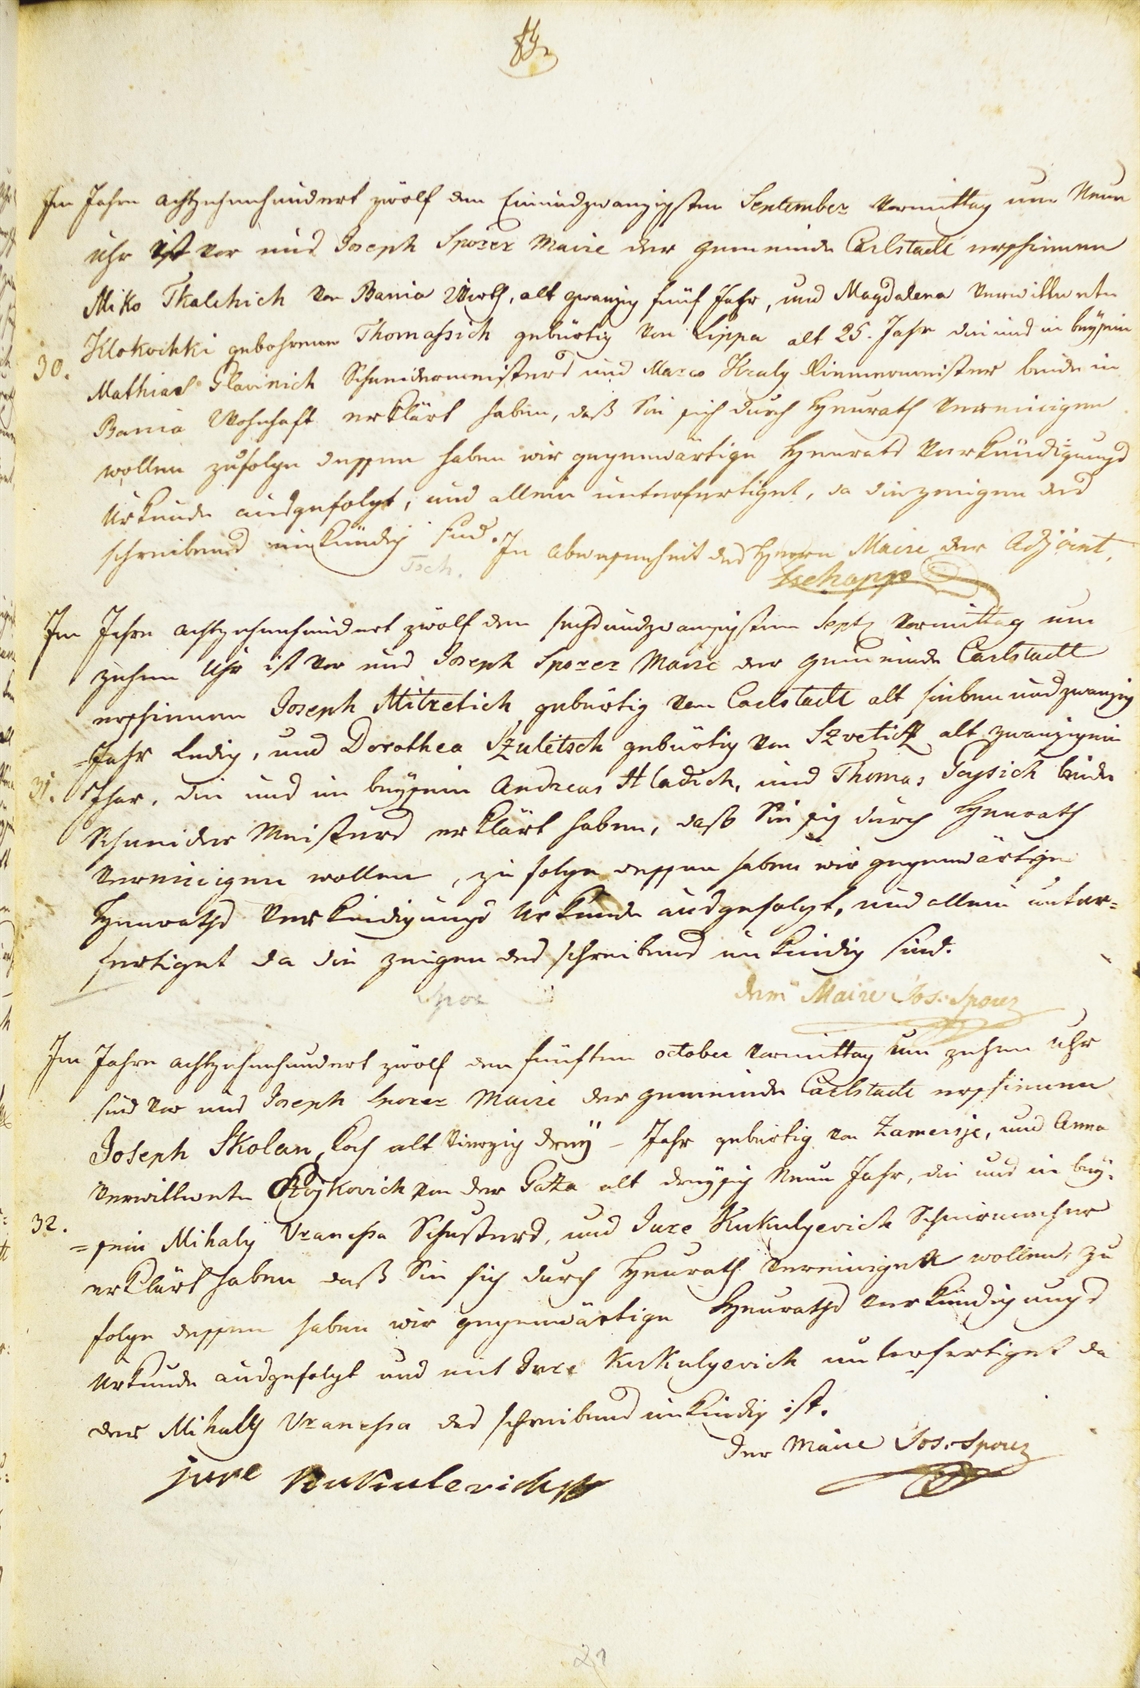 Im Jahre achtzehenhundert zwölf den Einundzwanzigsten September Vormittag um Neun
Uhr ist vor uns Joseph Sporer Maire der gemeinde Carlstadt erschienen
Miko Tkalchich von Bania Wirth, alt zwanzig fünf Jahr, und Magdalena Verwittwete
Klokochki gebohrene Thomassich gebürtig von Lippa alt 25. Jahr die uns in beysein
30.
Mathias Glavinich Schneidermeisters und Marco Kraly Riemermeister beide in
Bania Wohnhaft erklärt haben, daß Sie sich durch Heurath Vereinigen
wollen zufolge dessen haben wir gegenwärtige Heuraths Verkündigungs
Urkunde ausgefolgt, und allein unterfertiget, da die zeugen des
schreibens unkündig sind. In abwesenheit des Herrn Maire der Adjoint.
Tsch. Tschopp
Im Jahre achtzehenhundert zwölf den sechsundzwanzigsten Sept. Vormittag um
zehen Uhr ist vor uns Joseph Sporer Maire der gemeinde Carlstadt
erschienen Joseph Mitretich gebürtig von Carlstadt alt sieben und zwanzig
Jahr ledig, und Dorothea Szuletsch gebürtig von Szvetich alt zwanzigein
31.
Jahr, die uns im beysein Andreas Hladich, und Thomas Paysich beide
Schneider Meisters erklärt haben, daß Sie sich durch Heurath
Vereinigen wollen, zu folge dessen haben wir gegenwärtige
Heuraths Verkündigungs Urkunde ausgefolgt, und allein unter=
fertiget da die zeugen des schreibens unkündig sind.
Spor der Maire Jos: Sporer
Im Jahre achtzehenhundert zwölf den fünften october Vormittag um zehen Uhr
sind vor uns Joseph Sporer Maire der gemeinde Carlstadt erschienen
Joseph Skolan, Koch alt Vierzig drey – Jahr gebürtig von Zamersje, und Anna
Verwittwete Stojkovich von der Gatta alt dreysig Neun Jahr, die uns in bey-
32.
=sein Mihaly Vranessa Schusters, und Jure Kukulyevich Schnirmacher
erklärt haben daß Sie sich durch Heurath Vereinigen wollen, zu
folge dessen haben wir gegenwärtige Heuraths Verkündigungs
Urkunde ausgefolgt und mit Jure Kukulyevich unterfertiget da
der Mihaly Vranessa des schreibens unkündig ist.
der Maire Jos: Sporer
jure Kukulevich
21